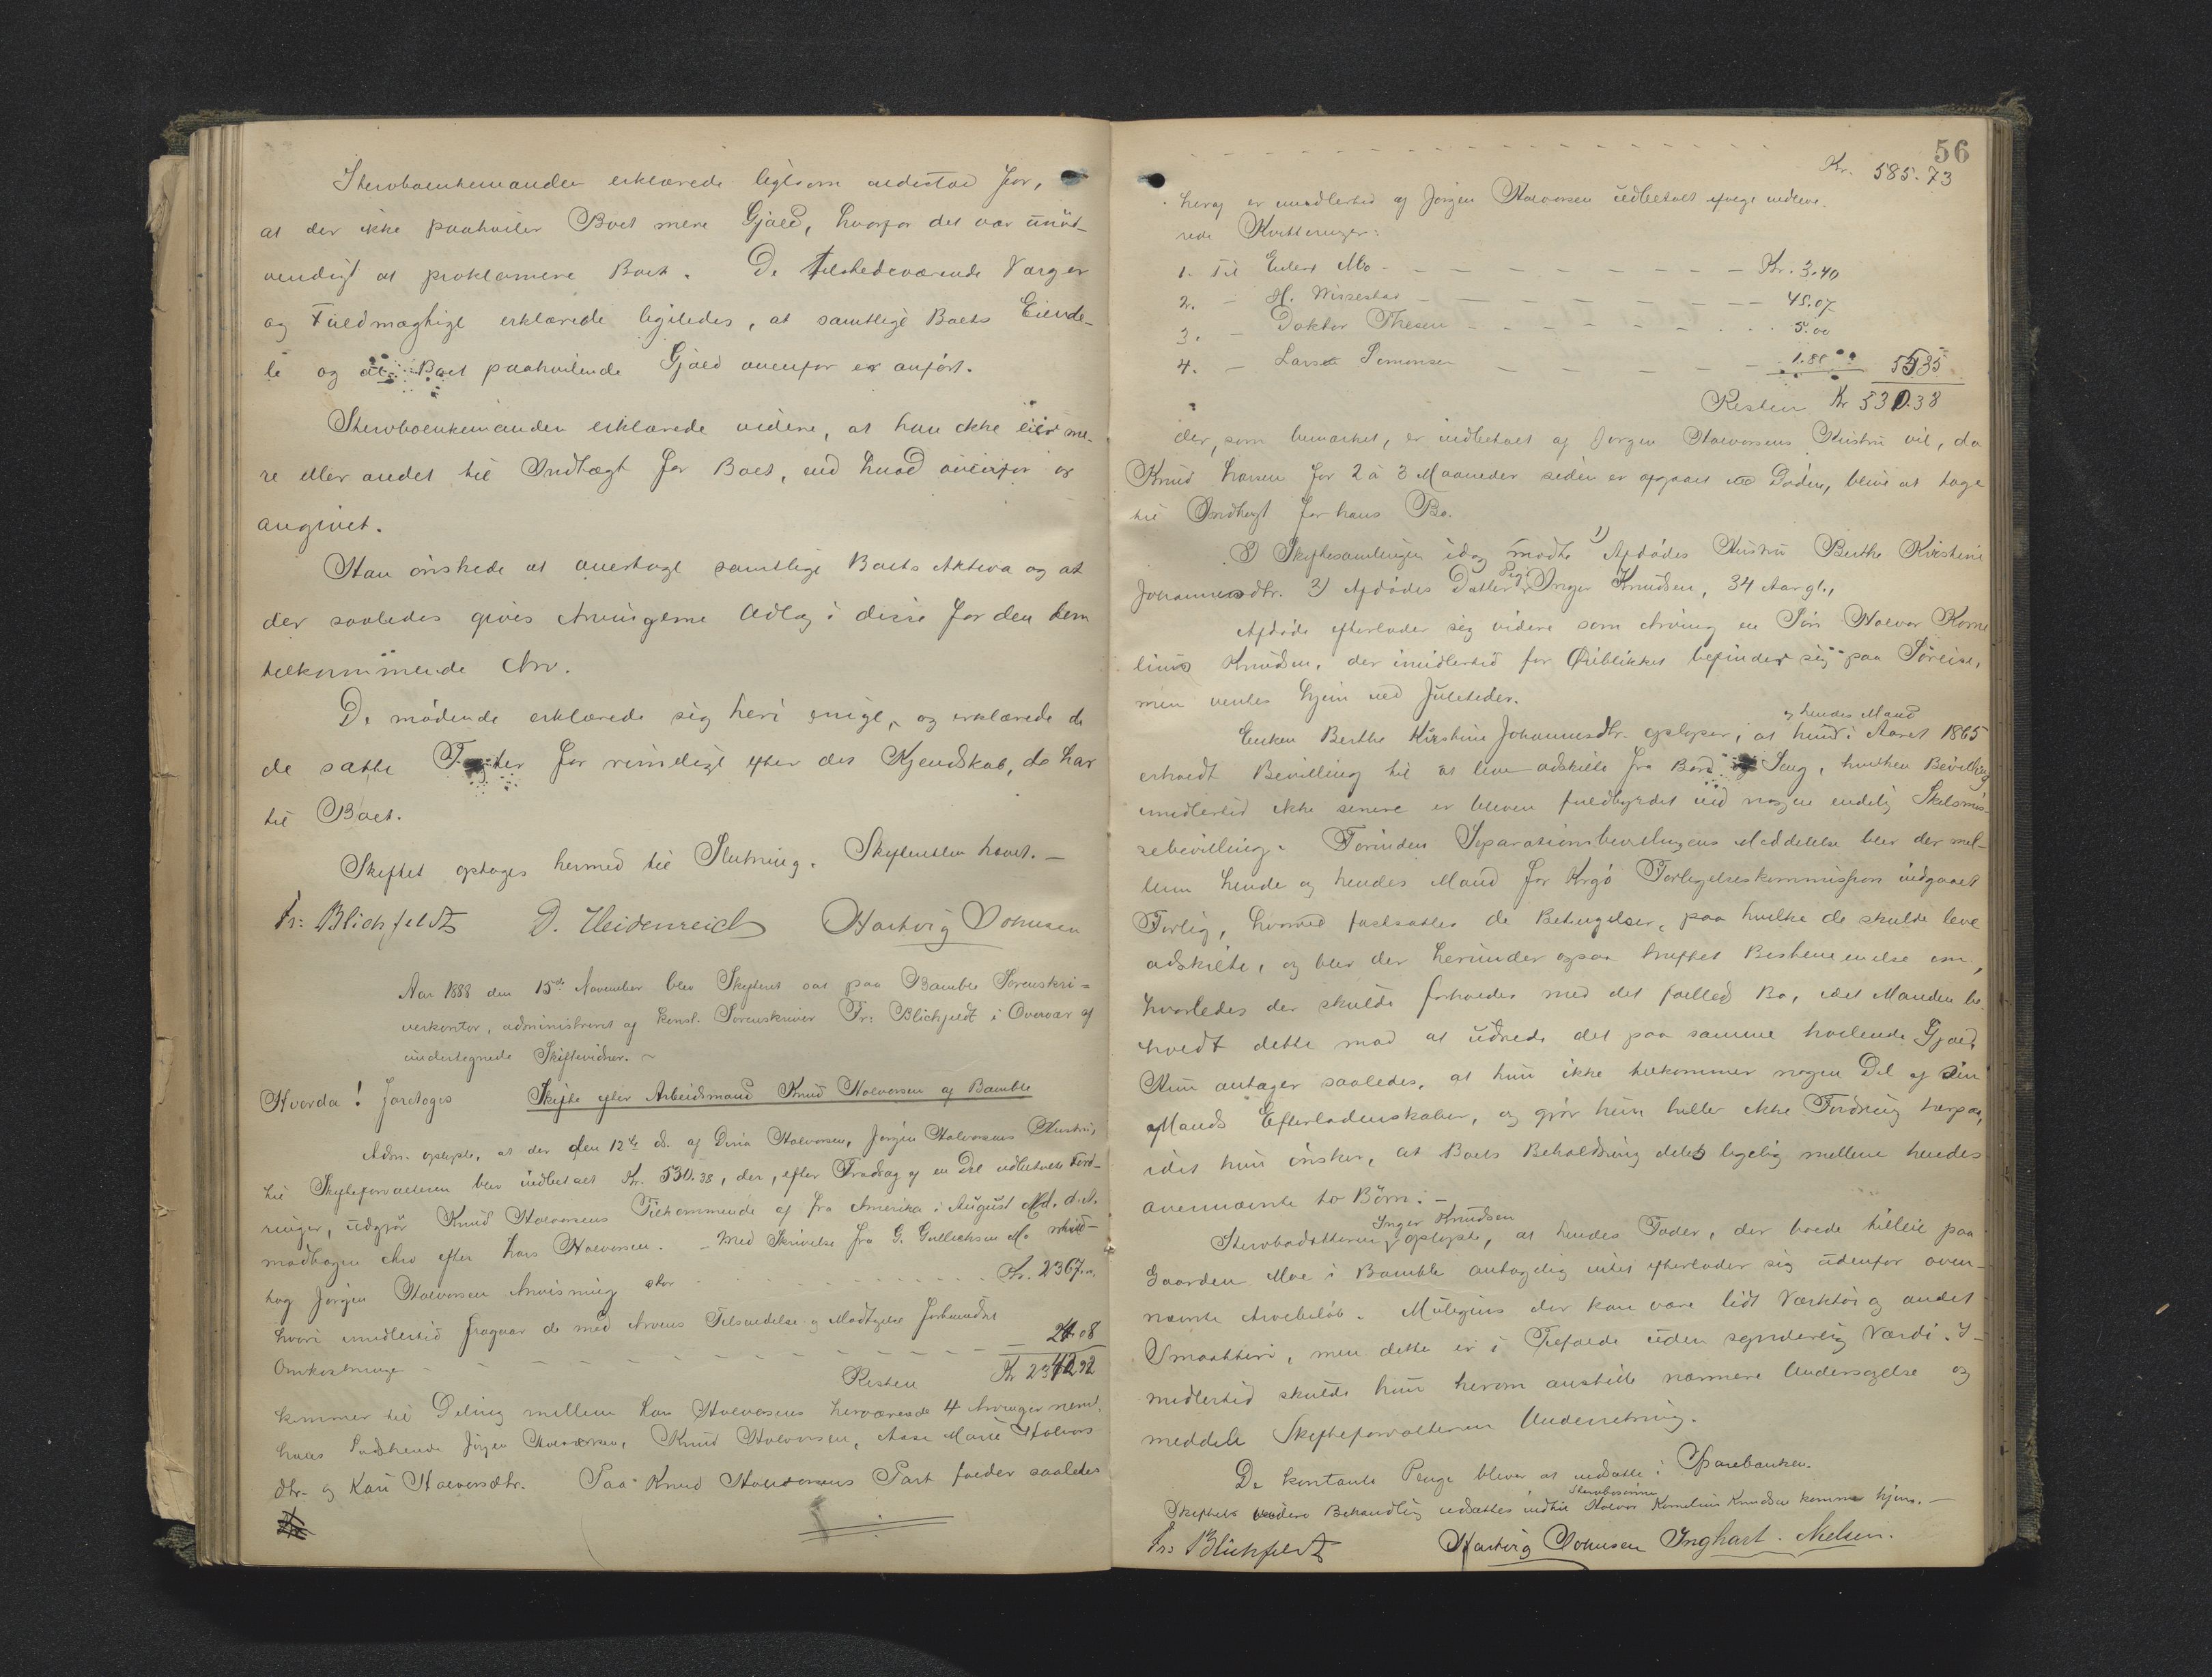 Stervboenkemanden erklærede ligesom indestod for,
at der ikke paahviler Boet mere Gjæld, hvorfor det var unöd-
vendigt at proklamere Boet. De tilstedeværende Værger
og Fuldmægtige erklærede ligeledes, at samtlige Boets Eiende-
le og al Boet paahvilende Gjæld ovenfor er anfört.
Stervboenkemanden erklærede videre, at han ikke eier me-
re eller andet til Indtægt for Boet, end hvad ovenfor er
angivet.
Han önskede at overtage samtlige Boets Aktiva og at
der saaledes gives Arvingerne Udlæg i disse for den dem
tilkommende Arv.
De mödende erklærede sig heri enige, og erklærede de
de satte Taxter for rimelige efter det Kjendskab, de har
til Boet.
Skiftet optages hermed til Slutning. Skifteretten hævet. —
Fr: Blichfeldt D. Heidenreich Hartvig Johnsen
Aar 1888 den 15de November blev Skifteret sat paa Bamble Sorenskri-
verkontor, administreret af konst. Sorenskriver Fr: Blichfeldt i Overvær af
undertegnede Skiftevidner. ~
Hvorda! foretoges Skifte efter Arbeidsmand Knud Halvorsen af Bamble
Adm. oplyste, at der den 12te ds. af Jörgen Halvorsens Hustru,
til Skifteforvalteren blev indbetalt Kr. 530.38, der, efter Fradrag af en Del udbetalte Ford-
ringer, udgjör Knud Halvorsens Tilkommende af fra Amerika i August Md. d. A.
modtagen Arv efter Lars Halvorsen. – Med Skrivelse fra G. Gullichsen
tog Jörgen Halvorsen Anvisning stor Kr. 2367.00
hvori imidlertid fragaar de med Arvens Tilsendelse og Modtagelse forbundne
Omkostninger – 24.08
Resten Kr 2342.92
kommer til Deling mellem Lars Halvorsens herværende 4 Arvinger neml.
hans Södskende Jörgen Halvorsen, Knud Halvorsen, Aase Marie Halvors
dtr. og Kari Halvorsdtr. Paa Knud Halvorsens Part falder saaledes
56
Kr. 585.73
heraf er imidlertid af Jörgen Halvorsen udbetalt ifölge indleve-
rede Kvitteringer:
1. Til Mo – Kr. 3.40
2. – H. – 45.07
3. – Doktor Thesen – 5.00
4. – Lars Simonsen – 1.88 55.35
Resten Kr 530.38
der, som bemærket, er indbetalt af Jörgen Halvorsens Hustru vil, da
Knud for 2 à 3 Maaneder siden er afgaaet ved Döden, blive at tage
til Indtægt for hans Bo.
I Skiftesamlingen idag mödte 1) Afdödes Hustru Berthe Kirstine
Johannesdtr. 2) Afdödes Datter Pige Inger Knudsen, 34 Aar gl.,
Afdöde efterlader sig videre som Arving en Sön Halvor Korne
lius Knudsen, der imidlertid for Öieblikket befinder sig paa Söreise,
men ventes hjem ved Juletider.
Enken Berthe Kirstine Johannesdtr. oplyser, at hun og hendes Mand i Aaret 1865
erholdt Bevilling til at leve adskilte fra Bord og Seng, hvilken Bevilling
imidlertid ikke senere er bleven fuldbyrdet ved nogen endelig Skilsmis-
sebevilling. Forinden Separationsbevillingens Meddelelse blev der mel-
lem hende og hendes Mand for Forligelseskommission indgaaet
Forlig, hvorved fastsattes de Betingelser, paa hvilke de skulde leve
adskilte, og blev der herunder ogsaa truffet Bestemmelse om,
hvorledes der skulde forholdes med det fælled Bo, idet Manden be-
holdt dette mod at udrede det paa samme hvilende Gjæld.
Hun antager saaledes, at hun ikke tilkommer nogen Del af sin
Mands Efterladenskaber, og gjör hun heller ikke Fordring herpaa,
idet hun önsker, at Boets Beholdning deles ligelig mellem hendes
ovennævnte to Börn. –
Stervbodatteren Inger Knudsen oplyste, at hendes Fader, der boede tilleie paa
Gaarden Moe i Bamble antagelig intet efterlader sig udenfor oven-
nævnte Arvebelöb. Muligens der kan være lidt Værktöi og andet
Smaatteri, men dette er i Tilfælde uden synderlig Værdi. I-
midlertid skulde hun herom anstille nærmere Undersögelse og
meddele Skifteforvalteren Underretning.
De kontante Penge bliver at indsætte i Sparebanken.
Skiftets videre Behandling udsættes indtil Stervbosönnen Halvor Kornelius Knudsen kommer hjem. –
Fr: Blichfeldt Hartvig Johnsen Inghart. Nielsen.